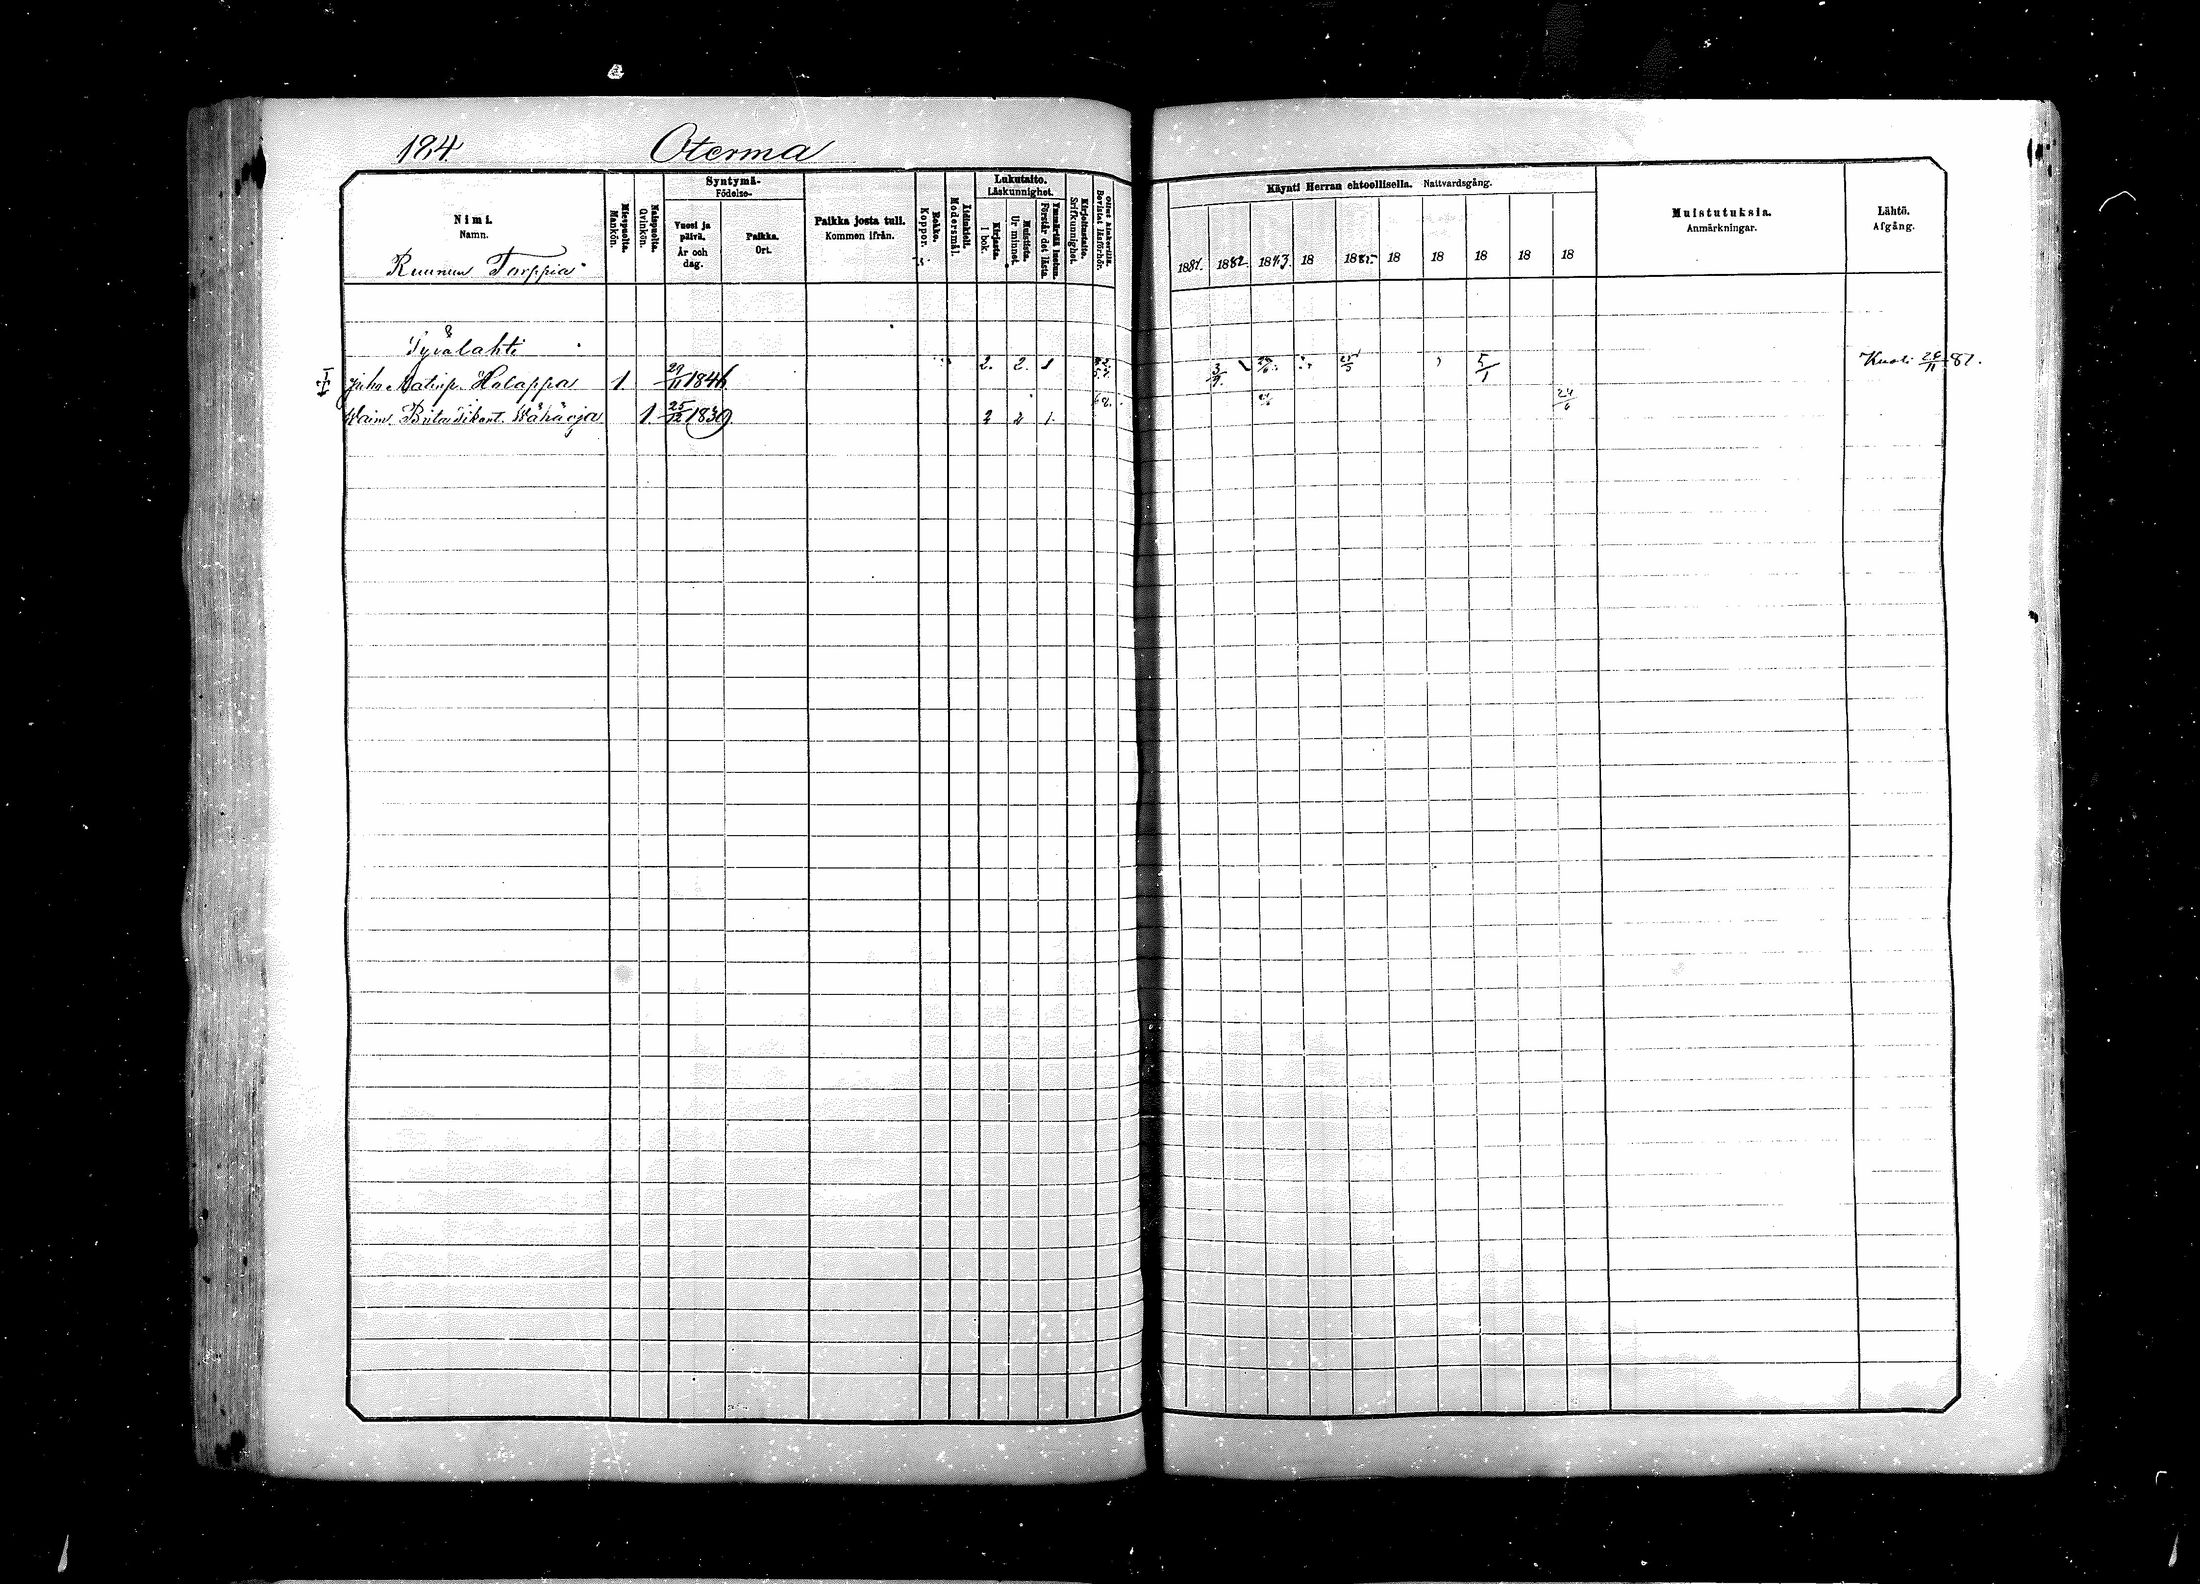 184. Oterma
Nimi. Namn.
Ruunun Torppia
Miespuolia. Mankön.
Naispuolia. Qvinkön.
Syntymä- Födelse-
Vuosi ja päivä. År och dag.
Paikka. Ort.
Paikka josta tuli. Kommen ifrån.
Rokko. Koppor.
Äidinkieli. Modersmål.
Lukutaito. Läskunnighet.
Kirjasta. I bok.
Muistista. Ur minnet.
Ymmärtää luetun. Förstår det lästa.
Kirjoitustaito. Skrifkunnighet.
Ollut kinkerillä. Bevistat läsförhör.
Käynti Herran ehtoollisella. Nattvardsgång.
1881. 1882. 1883. 18 1885 18 18 18 18 18
Muistutuksia. Anmärkningar.
Lähtö. Afgång.
Syvälahti
Juho Matinp. Halappa 1. 29/11 1846 2. 2. 1 3/9 5/1 Kuoli 26/11 87.
Waim. Brita Heikint. Wähäoja 1. 25/12 1839. 2 2 1. 24/6